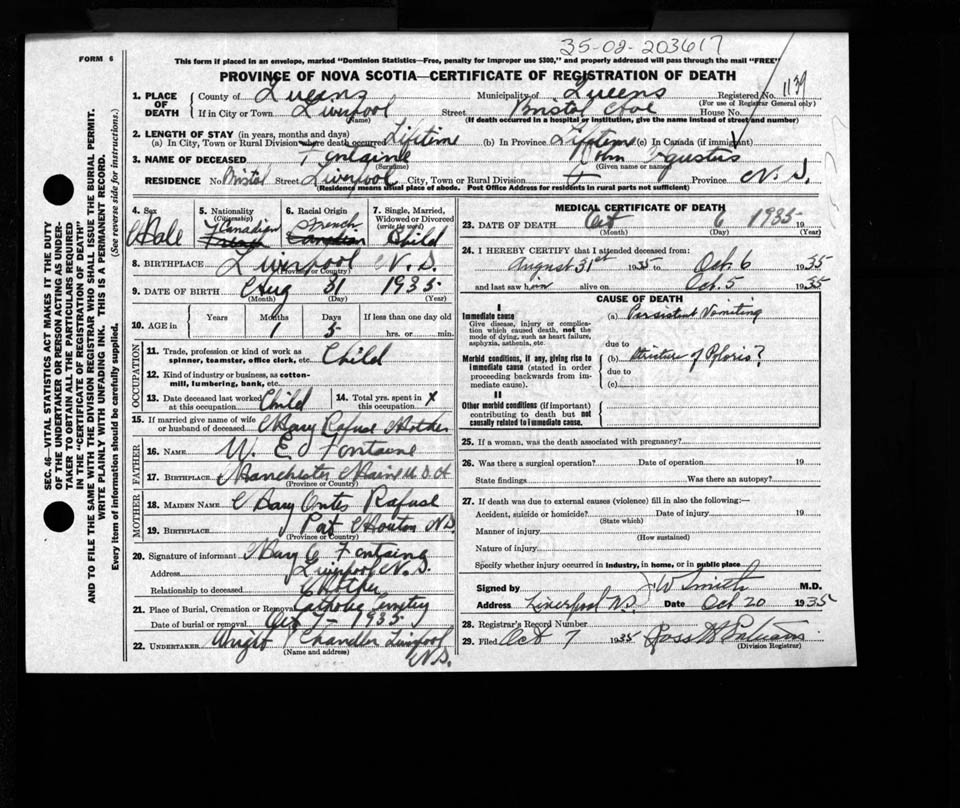 35-02-203617
FORM 6
This form if placed in an envelope, marked "Dominion Statistics—Free, penalty for improper use $300," and properly addressed will pass through the mail "FREE"
PROVINCE OF NOVA SCOTIA—CERTIFICATE OF REGISTRATION OF DEATH
1139
1. PLACE OF DEATH County of Queens Municipality of Queens Registered No.
(For use of Registrar General only)
If in City or Town Liverpool Street Bristol Ave House No.
(Name) (If death occurred in a hospital or institution, give the name instead of street and number)
2. LENGTH OF STAY (in years, months and days)
(a) In City, Town or Rural Division where death occurred Lifetime (b) In Province Lifetime (c) In Canada (if immigrant)
3. NAME OF DECEASED Fontaine
(Surname) (Given name or names)
RESIDENCE No. Bristol Street Liverpool City, Town or Rural Division Province N.S.
(Residence means usual place of abode. Post Office Address for residents in rural parts not sufficient)
4. Sex Male
5. Nationality (Citizenship) Canadian French
6. Racial Origin French Canadian
7. Single, Married, Widowed or Divorced (write the word) Child
8. BIRTHPLACE Liverpool N.S.
(Province or Country)
9. DATE OF BIRTH Aug 31 1935
(Month) (Day) (Year)
10. AGE in Years Months Days If less than one day old
1 5 hrs. or min.
OCCUPATION
11. Trade, profession or kind of work as spinner, teamster, office clerk, etc. Child
12. Kind of industry or business, as cotton-mill, lumbering, bank, etc.
13. Date deceased last worked at this occupation Child 14. Total yrs. spent in this occupation X
15. If married give name of wife or husband of deceased Mary Rafuse Mother
FATHER
16. NAME W. E. Fontaine
17. BIRTHPLACE Manchester Maine U S A
(Province or Country)
MOTHER
18. MAIDEN NAME Mary Rafuse
19. BIRTHPLACE Port Mouton N.S.
(Province or Country)
20. Signature of informant Mary C Fontaine
Address Liverpool N.S.
Relationship to deceased Mother
21. Place of Burial, Cremation or Removal Catholic Cemetery
Date of burial or removal Oct 7 - 1935
22. UNDERTAKER Wright Chandler Liverpool
(Name and address) N.S.
MEDICAL CERTIFICATE OF DEATH
23. DATE OF DEATH Oct 6 1935 19
(Month) (Day) (Year)
24. I HEREBY CERTIFY that I attended deceased from:
August 31st 1935 to Oct. 6 1935
and last saw him alive on Oct. 5 1935
CAUSE OF DEATH
I
Immediate cause
Give disease, injury or complication which caused death, not the mode of dying, such as heart failure, asphyxia, asthenia, etc.
(a) Persistent Vomiting
due to
Morbid conditions, if any, giving rise to immediate cause (stated in order proceeding backwards from immediate cause).
(b) Stricture of Pyloris?
due to
(c)
II
Other morbid conditions (if important) contributing to death but not causally related to immediate cause.
25. If a woman, was the death associated with pregnancy?
26. Was there a surgical operation? Date of operation 19
State findings Was there an autopsy?
27. If death was due to external causes (violence) fill in also the following:—
Accident, suicide or homicide? Date of injury 19
(State which)
Manner of injury
(How sustained)
Nature of injury
Specify whether injury occurred in industry, in home, or in public place
Signed by J W Smith M.D.
Address Liverpool N.S. Date Oct 20 1935
28. Registrar's Record Number
29. Filed Oct 7 1935
(Division Registrar)
SEC. 46—VITAL STATISTICS ACT MAKES IT THE DUTY OF THE UNDERTAKER OR PERSON ACTING AS UNDERTAKER TO OBTAIN ALL THE PARTICULARS REQUIRED IN THE "CERTIFICATE OF REGISTRATION OF DEATH"
AND TO FILE THE SAME WITH THE DIVISION REGISTRAR WHO SHALL ISSUE THE BURIAL PERMIT.
WRITE PLAINLY WITH UNFADING INK. THIS IS A PERMANENT RECORD.
Every item of information should be carefully supplied. (See reverse side for instructions.)